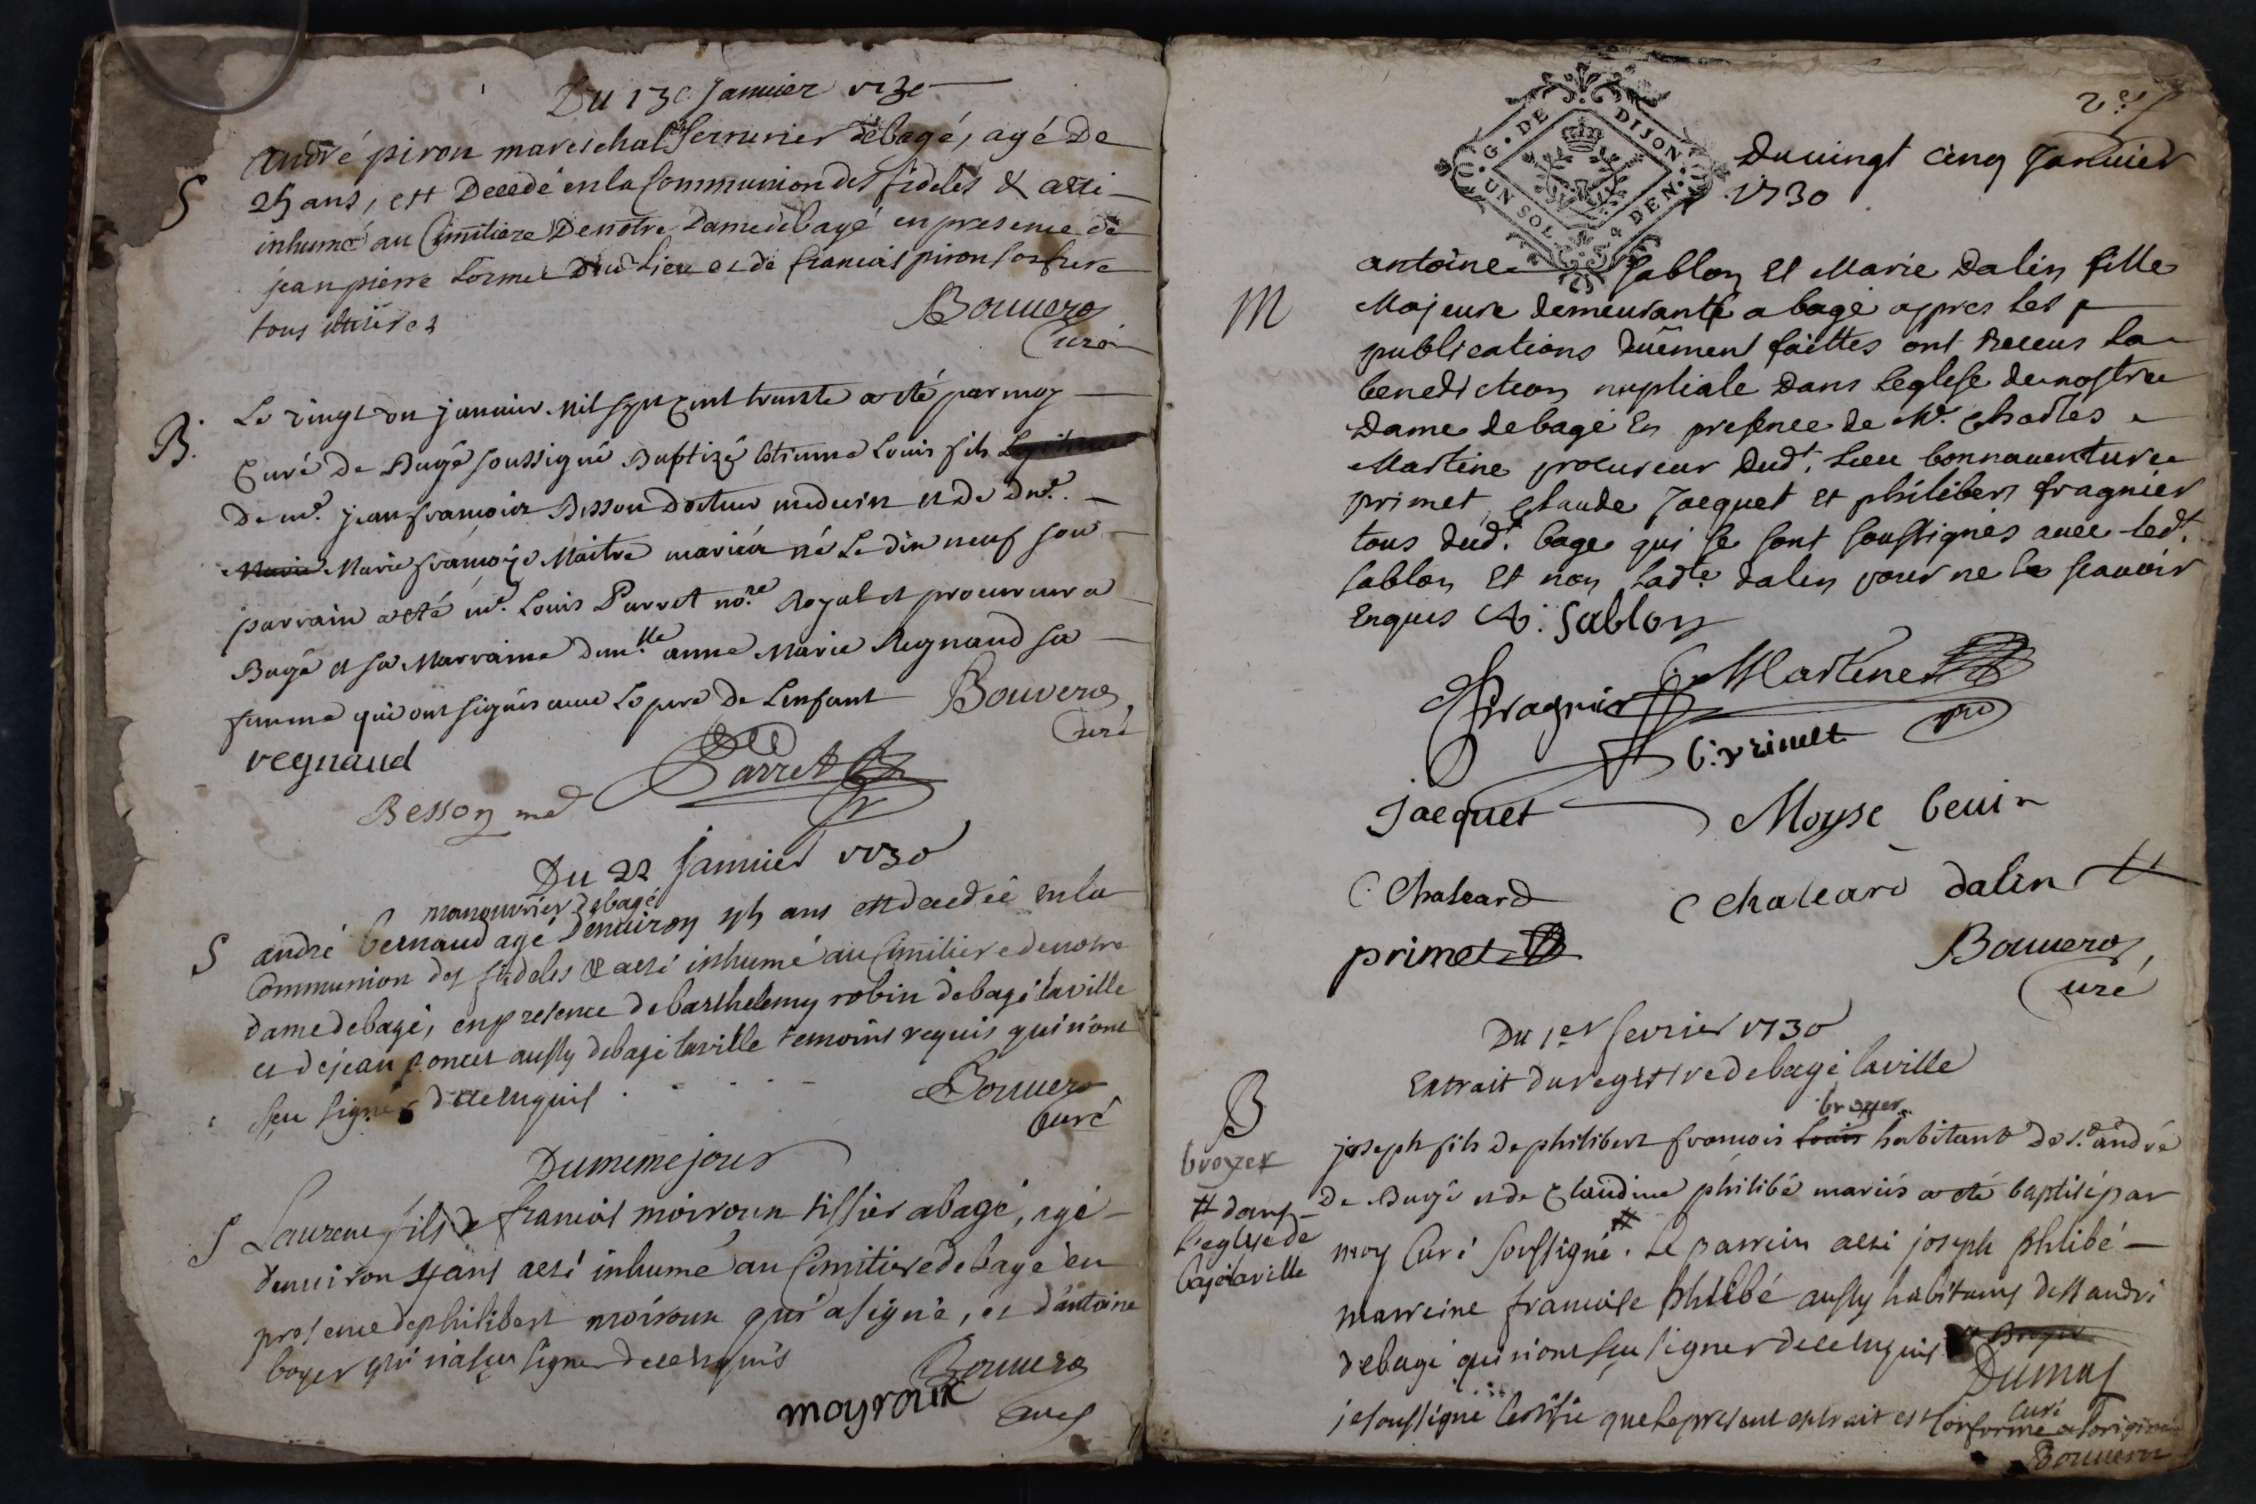 Du 13e Janvier 1730
S
André piron mareschal & Serrurier debagé, agé De
25 ans, est Decedé en la Communion des fideles & a esté
inhumé au Cimitiere De notre Dame debagé en presence de
jean pierre dud Lieu et de francois piron son frere
tous
Bouvero
Curé
B.
Le vingt un janvier mil sept cent trante a eté par moy
Curé de Bagé soussigné Baptizé Etienne Louis fils
de mr. jean francois Besson docteur medecin et de dme.
Marie Marie françoise Maitre mariéz né le dix neuf son
parrain a eté mr. Louis Parret nore. Royal et procureur a
Bagé et sa Marraine demlle anne Marie Regnaud sa
femme qui ont signés avec le pere de Lenfant
Bouvero
Curé
regnaud
Parret
Besson med
Du 22 Janvier 1730
manouvrier debagé
S
andré bernaud agé Denviron 45 ans est decedée en la
Communion des fideles & a esté inhumé au Cimitiere de notre
dame debagé, en presence de barthelemy robin debagé laville
et de jean poncet aussy debagé laville temoins requis qui n'ont
sçu signer de ce enquis
Bouvero
Curé
Du meme jour
S
Laurent fils de francois moiroux tissier a bagé, agé
denviron 4 ans a esté inhumé au Cimitiere de bagé en
presence de philibert moiroux qui a signé, et d'antoine
boyer qui n'a sçu signer de ce enquis
Bouvero
moyroux
Curé
2e
G. DE DIJON
UN SOL 4 DEN.
Du vingt cinq Janvier
1730
M
antoine Sablon Et Marie Dalin fille
Majeure demeurante a bagé appres les
publications duëment faittes ont Receus la
benediction nuptiale Dans Leglise de nostre
Dame debagé En presence de Mr. Charles
Martine procureur Dudt. Lieu bonnaventure
primet, Claude Jacquet Et philibert fragnier
tous dudt. bage qui se sont soussignés avec ledt.
Sablon Et non Ladte. dalin pour ne le scavoir
Enquis A. Sablon
Fragnier
C. Martine
B. primet
Jacquet
Moyse bevin
C. Chaleard
C Chaleard
dalin
primet
Bouvero
Curé
Du 1er fevrier 1730
Extrait du registre debagé laville
B
broyer
broyer
joseph fils de philibert francois Louis habitant de st. andré
de Bagé et de Claudine philibé mariés a eté baptisé par
# dans
l'eglise de
bagé laville
moy Curé soussigné #. Le parrein a esté joseph philibé
marreine francoise philibé aussy habitans de st andré
debagé qui n'ont sçu signer de ce enquis
Dumas
curé
je soussigné Certifie que le present extrait est Conforme a l'original
Bouvero